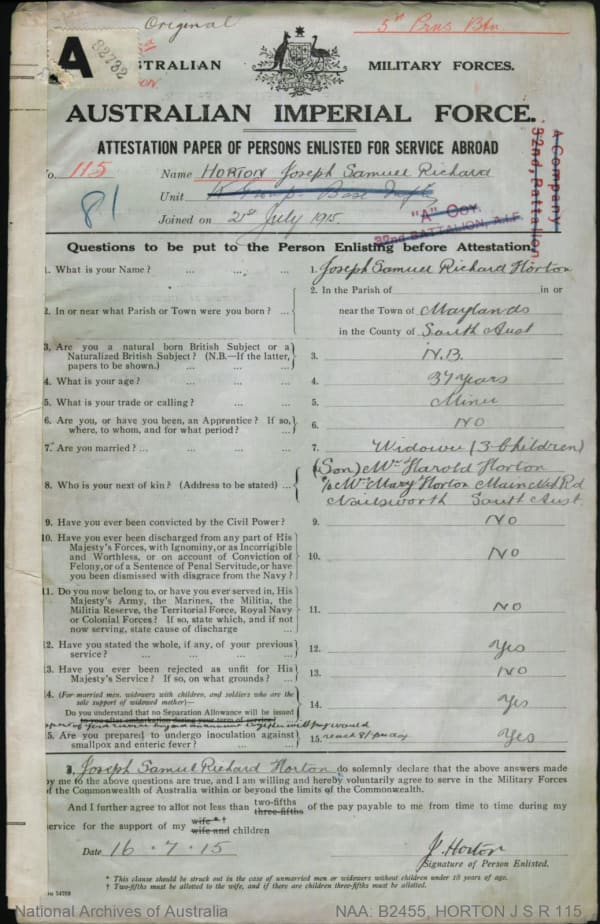 Original
5th Prns Btn
A 82732
AUSTRALIAN MILITARY FORCES.
AUSTRALIAN IMPERIAL FORCE.
ATTESTATION PAPER OF PERSONS ENLISTED FOR SERVICE ABROAD
No. 115 Name HORTON Joseph Samuel Richard
81
Unit
"A" Coy.
32nd BATTALION, A.I.F.
A Company
32nd. Battalion
Joined on 21st July 1915.
Questions to be put to the Person Enlisting before Attestation.
1. What is your Name? ... ... ... 1. Joseph Samuel Richard Horton
2. In or near what Parish or Town were you born? ... 2. In the Parish of in or
near the Town of Maylands
in the County of South Aust
3. Are you a natural born British Subject or a
Naturalized British Subject? (N.B.—If the latter,
papers to be shown.) ... ... 3. N.B.
4. What is your age? ... ... ... 4. 37 years
5. What is your trade or calling? ... ... 5. Miner
6. Are you, or have you been, an Apprentice? If so,
where, to whom, and for what period? ... 6. No
7. Are you married? ... ... ... 7. Widower (3 Children)
8. Who is your next of kin? (Address to be stated) ... (Son) Mr Harold Horton
c/o Mrs Mary Horton Main Nth Rd
Nailsworth South Aust.
9. Have you ever been convicted by the Civil Power? 9. No
10. Have you ever been discharged from any part of His
Majesty's Forces, with Ignominy, or as Incorrigible
and Worthless, or on account of Conviction of
Felony, or of a Sentence of Penal Servitude, or have
you been dismissed with disgrace from the Navy? 10. No
11. Do you now belong to, or have you ever served in, His
Majesty's Army, the Marines, the Militia, the
Militia Reserve, the Territorial Force, Royal Navy
or Colonial Forces? If so, state which, and if not
now serving, state cause of discharge ... 11. No
12. Have you stated the whole, if any, of your previous
service? ... ... ... 12. Yes
13. Have you ever been rejected as unfit for His
Majesty's Service? If so, on what grounds? ... 13. No
14. (For married men, widowers with children, and soldiers who are the
sole support of widowed mother)—
Do you understand that no Separation Allowance will be issued 14. Yes
to you after embarkation during your term of service
together with pay would
reach 8/- per day
15. Are you prepared to undergo inoculation against
smallpox and enteric fever? ... ... 15. Yes
I, Joseph Samuel Richard Horton do solemnly declare that the above answers made
by me to the above questions are true, and I am willing and hereby voluntarily agree to serve in the Military Forces
of the Commonwealth of Australia within or beyond the limits of the Commonwealth.
And I further agree to allot not less than two-fifths three-fifths of the pay payable to me from time to time during my
service for the support of my wife * † wife and children
Date 16.7.15 J. Horton
Signature of Person Enlisted.
* This clause should be struck out in the case of unmarried men or widowers without children under 18 years of age.
† Two-fifths must be allotted to the wife, and if there are children three-fifths must be allotted.
National Archives of Australia NAA: B2455, HORTON J S R 115